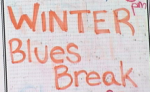 pm
WINTER
Blues
Break